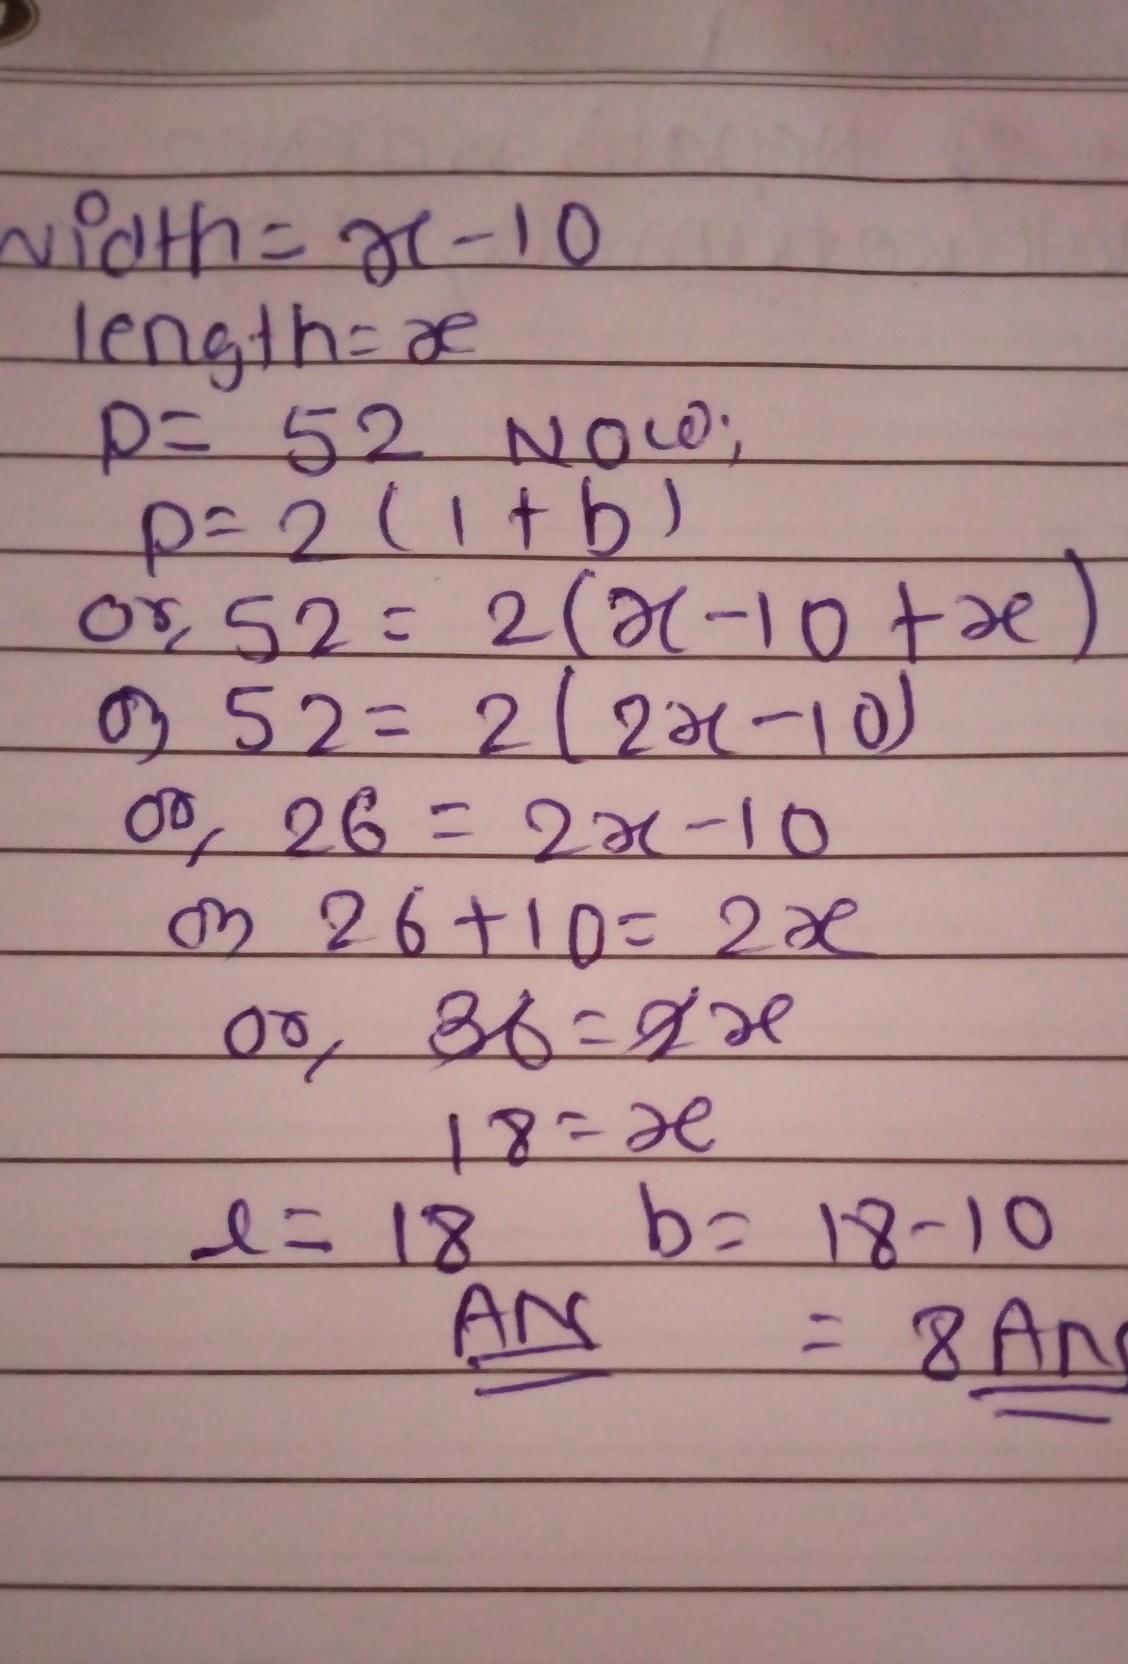 width = x - 10
length = x
P = 52 NOW;
P = 2 ( l + b )
or, 52 = 2 ( x - 10 + x )
or 52 = 2 ( 2x - 10 )
or, 26 = 2x - 10
or 26 + 10 = 2x
or, 36 = 2x
18 = x
l = 18 b = 18 - 10
ANS = 8 Ans